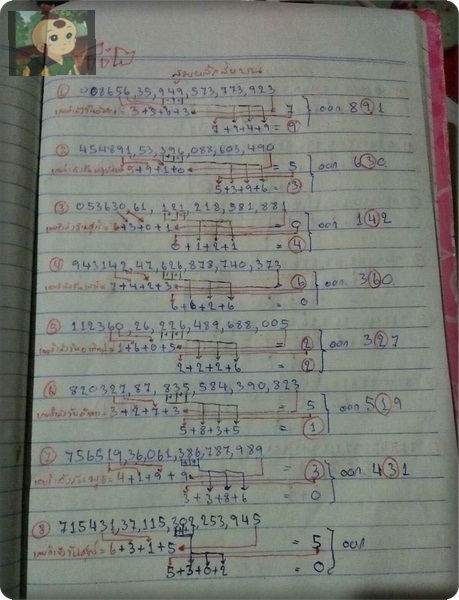 สูตรหลักสิบบน
① 008656,35,949,573,773,923
3+5+3+3 = 7 ออก 891
7+9+4+9 = 9
② 454891,53,396,088,603,490
5+9+1+0 = 5 ออก 630
5+3+9+6 = 3
③ 053630,61,121,218,581,881
6+3+0+1 = 0 ออก 142
0+1+2+1 = 4
④ 943142,47,626,878,740,373
7+4+2+3 = 6 ออก 360
6+6+2+6 = 0
⑤ 112360,26,226,489,688,005
1+6+0+5 = 2 ออก 327
2+2+2+6 = 2
⑥ 820327,87,835,584,390,823
3+2+7+3 = 5 ออก 519
5+8+3+5 = 1
⑦ 756519,36,061,386,787,989
4+2+9+9 = 3 ออก 431
3+3+8+6 = 0
⑧ 715431,37,115,302,253,945
6+3+1+5 = 5 ออก
5+3+0+2 = 0